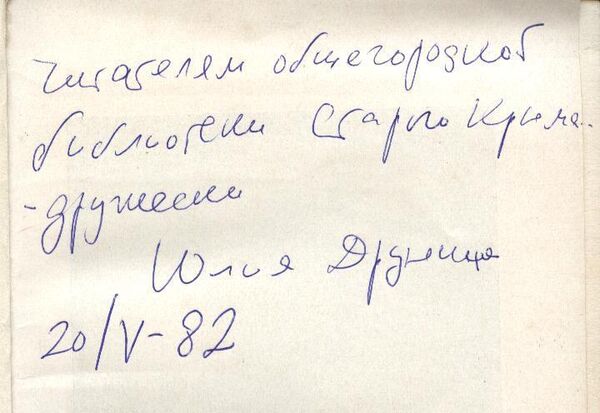 читателям общегородской
библиотеки Старого Крыма -
- дружески
Юлия Друнина
20/V-82